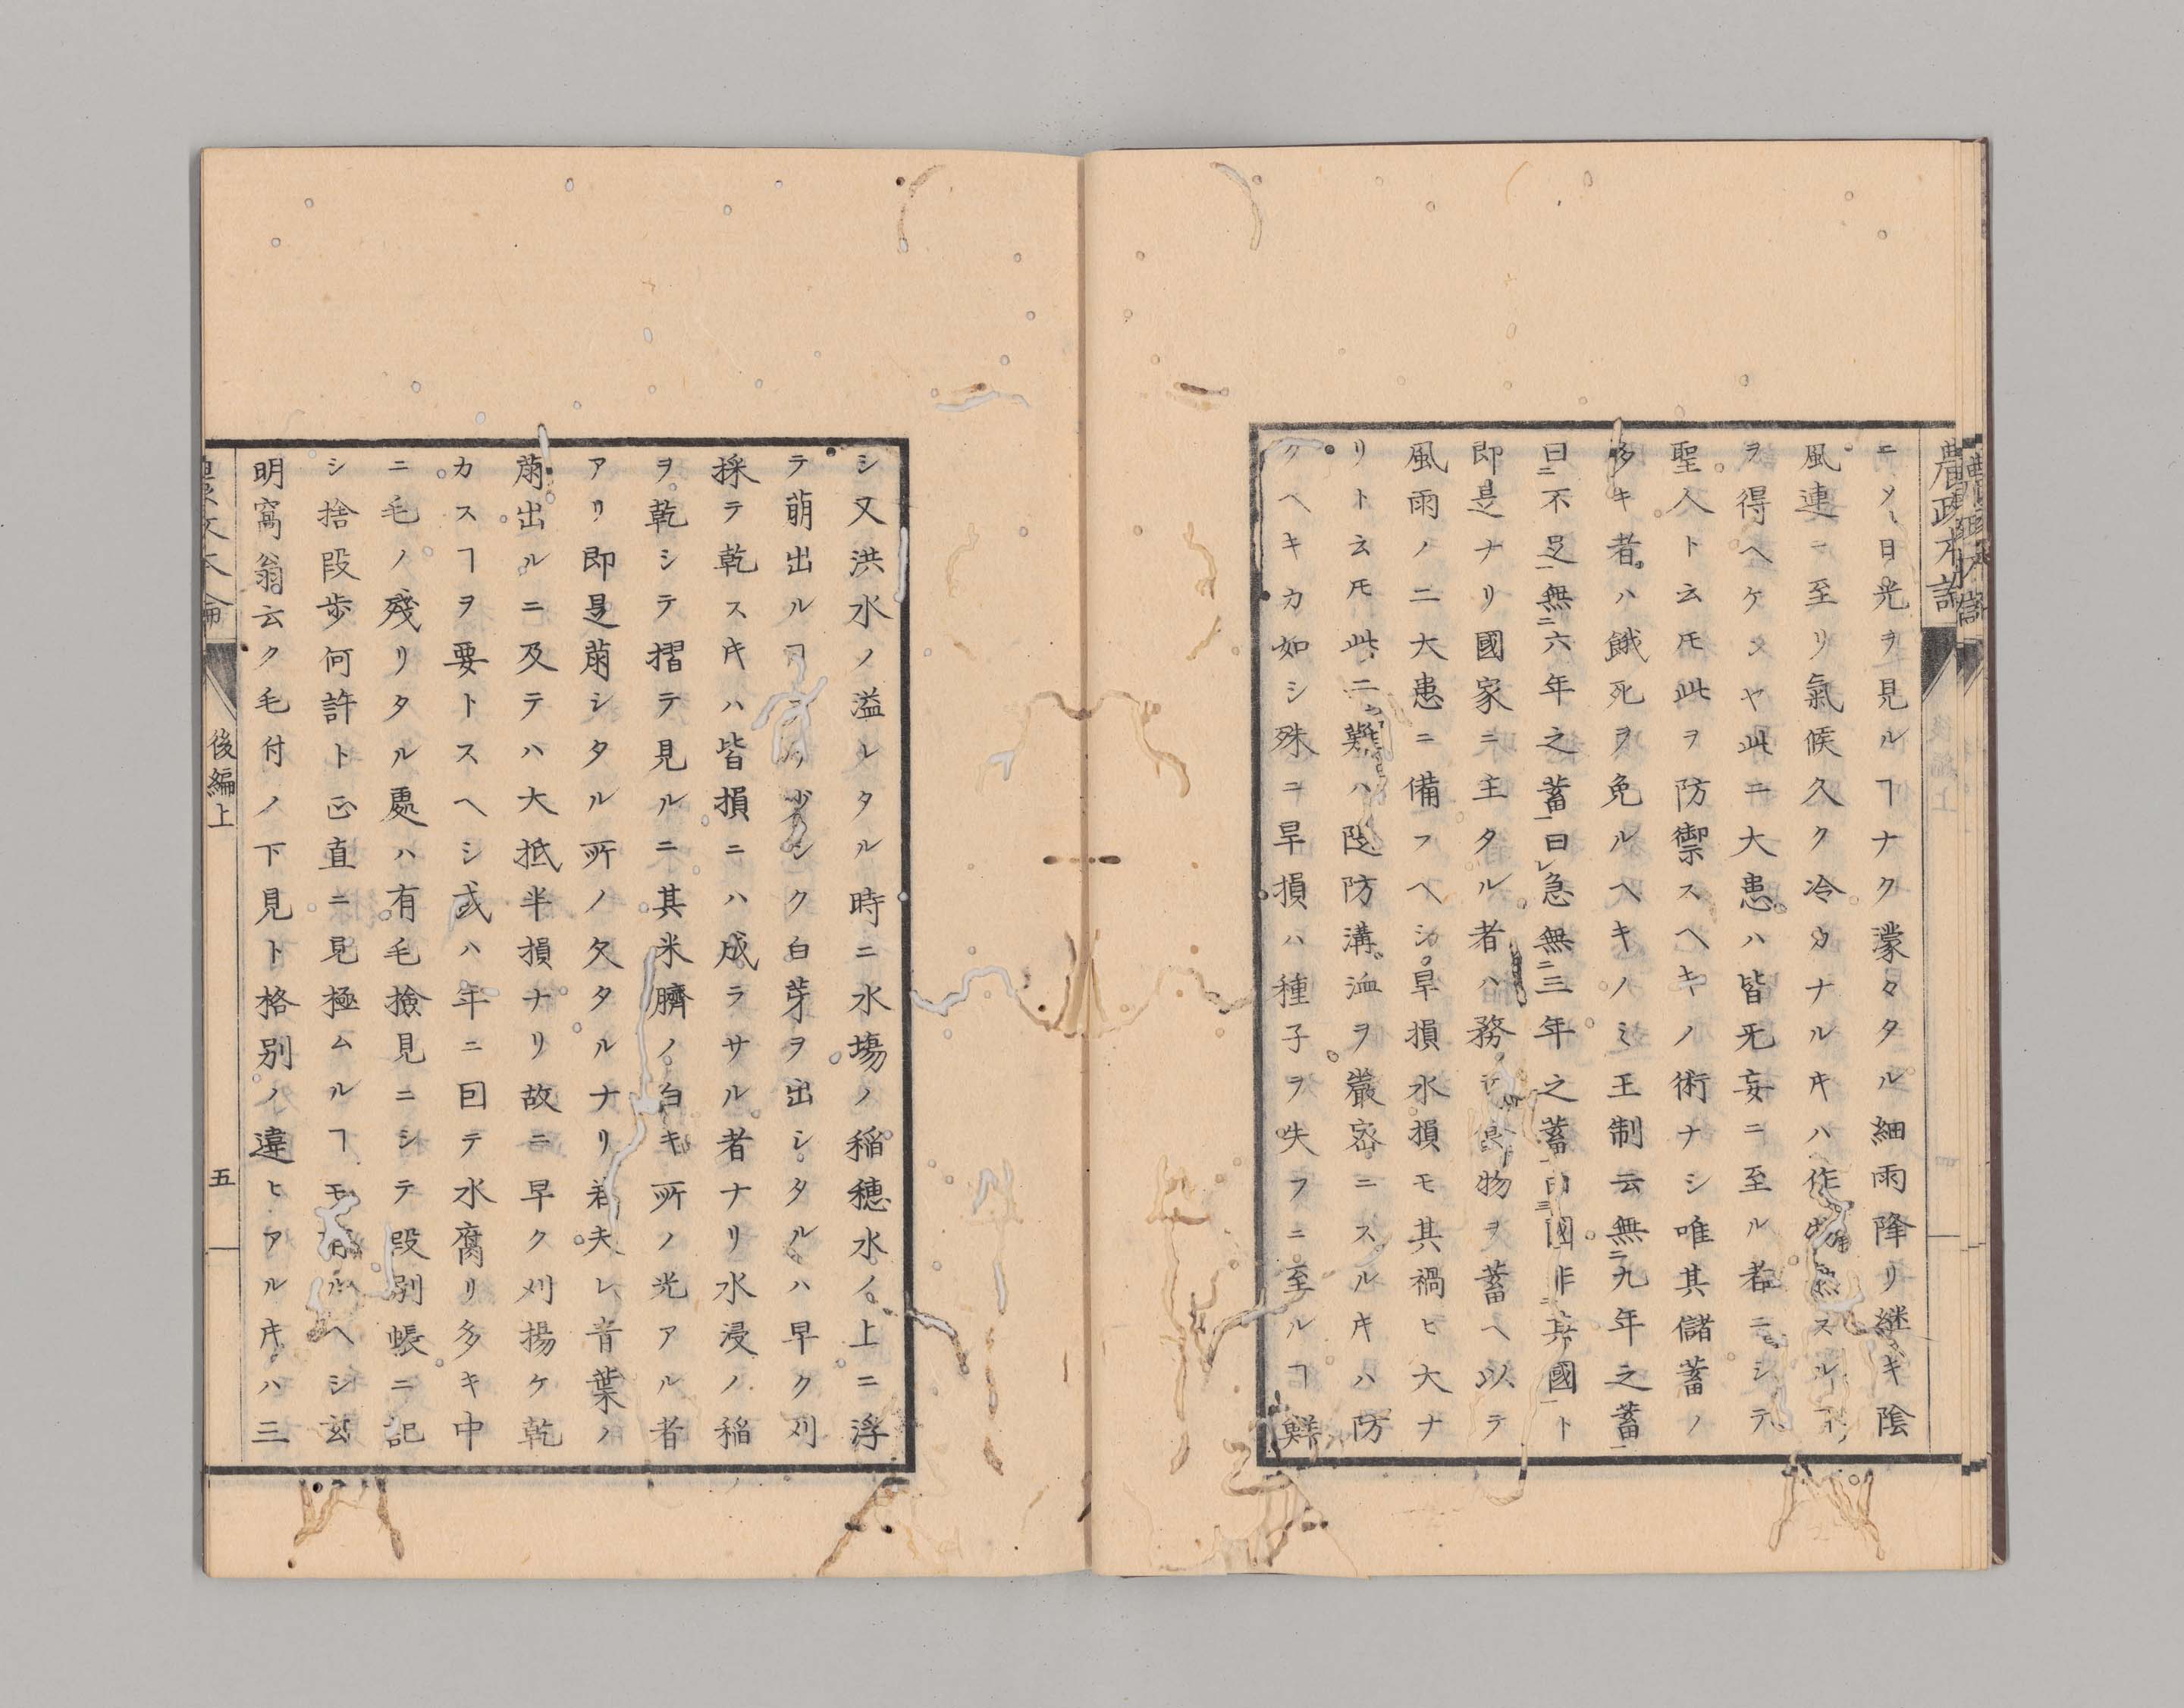 農政本論
ニメ日光ヲ見ルヿナク濛々タル細雨降リ継キ陰
風連ニ至リ氣候久ク冷カナルキハ作物熟スルヿ
ヲ得ヘケンヤ此ニ大患ハ皆旡妄ニ至ル者ニシテ
聖人ト云𪜈此ヲ防禦スヘキノ術ナシ唯其儲蓄ノ
多キ者ハ餓死ヲ免ルヘキノミ王制云無二九年之蓄一
曰二不足一無二六年之蓄一曰レ急無二三年之蓄一曰三國非二其國一ト
即是ナリ國家ニ主タル者ハ務テ食物ヲ蓄ヘ以テ
風雨ノ二大患ニ備フヘシ旱損水損モ其禍ヒ大ナ
リト云𪜈此二難ハ陂防溝洫ヲ嚴密ニスルキハ防
クヘキカ如シ殊ニ旱損ハ種子ヲ失フニ至ルヿ鮮
シ又洪水ノ溢レタル時ニ水場ノ稲穂水ノ上ニ浮
テ萠出ルヿアリ少シク白芽ヲ出シタルハ早ク刈
採テ乾スキハ皆損ニハ成ラサル者ナリ水浸ノ稲
ヲ乾シテ摺テ見ルニ其米臍ノ白キ所ノ光アル者
アリ即是萠シタル所ノ欠タルナリ若夫レ青葉ノ
萠出ルニ及テハ大抵半損ナリ故ニ早ク刈揚ケ乾
カスヿヲ要トスヘシ或ハ年ニ因テ水腐リ多キ中
ニ毛ノ殘リタル處ハ有毛撿見ニシテ段別帳ニ記
シ捨段歩何許ト正直ニ見極ムルヿモ有ルヘシ玄
明窩翁云ク毛付ノ下見ト格別ノ違ヒアルキハ三
後編上
五